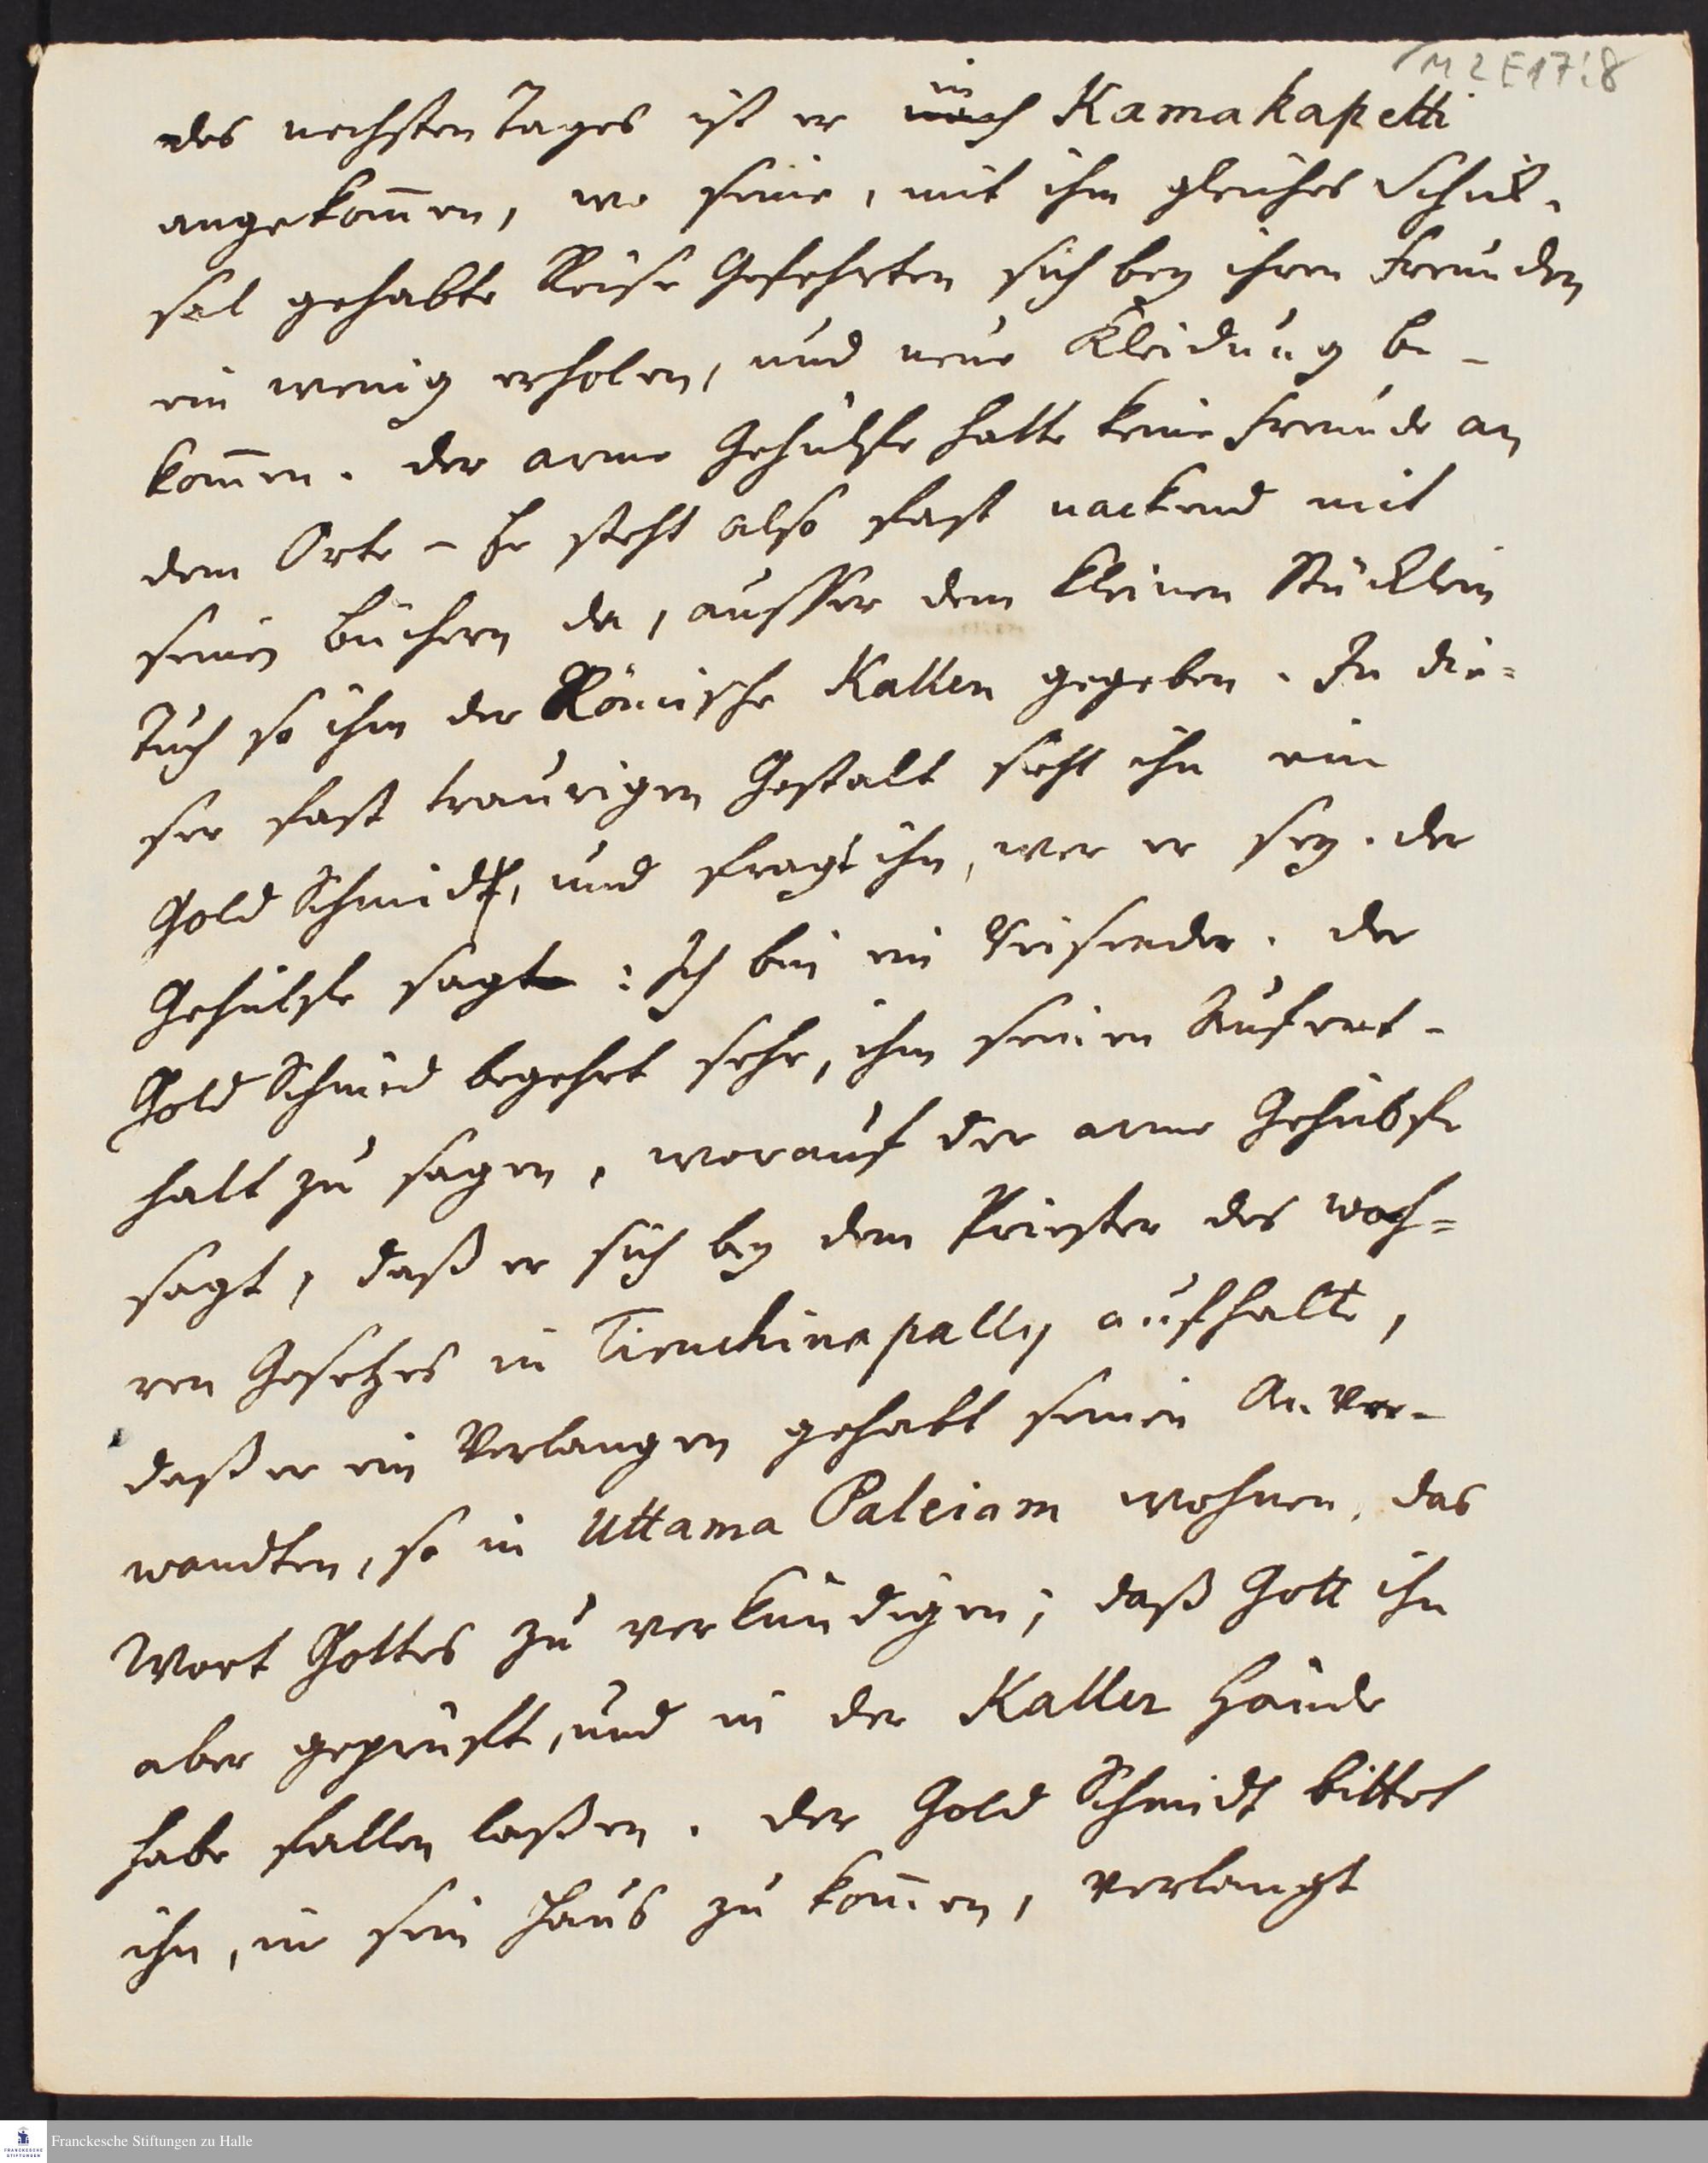 M 2 E 17:8
des nechsten Tages ist er in nach Kamakapetti
angekom̄en, wo seine, mit ihm gleiches Schik-
sal gehabte Reise Gefehrten sich bey ihren Freunden
ein wenig erholen, und neue Kleidung be-
kom̄en. der arme Gehülfe hatte keine Freunde an
dem Orte - Er steht also fast nackend mit
seinen Büchern da, ausser dem kleinen Stücklein
Tuch so ihm der Römische Kallen gegeben. In die=
ser fast traurigen Gestalt sieht ihn ein
Gold Schmidt, und fragt ihn, wer er sey. der
Gehülfe sagt : Ich bin ein Reisender. der
Gold Schmied begehrt sehr, ihm seinen Aufent-
halt zu sagen, worauf der arme Gehülfe
sagt, daß er sich bey dem Priester des wah=
ren Gesetzes in Tiruchinapally aufhalte,
daß er ein Verlangen gehabt seinen Anver-
wandten, so in Uttama Paleiam wohnen, das
Wort Gottes zu verkündigen; daß Gott ihn
aber geprüft, und in der Kaller Hände
habe fallen laßen. der Gold Schmidt bittet
ihn, in sein Haus zu kom̄en, verlangt
Franckesche Stiftungen zu Halle
FRANCKESCHE STIFTUNGEN